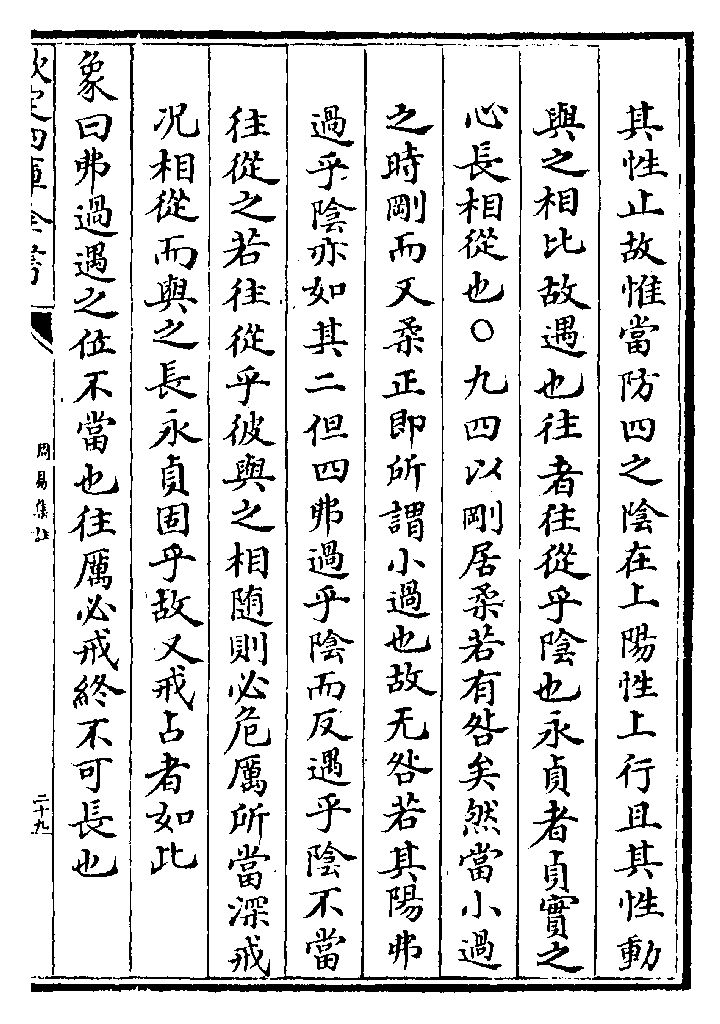 其性止故惟當防四之陰在上陽性上行且其性動
與之相比故遇也往者往從乎陰也永貞者貞實之
心長相從也○九四以剛居柔若有咎矣然當小過
之時剛而又柔正即所謂小過也故无咎若其陽弗
過乎陰亦如其二但四弗過乎陰而反遇乎陰不當
往從之若往從乎彼與之相随則必危厲所當深戒
况相從而與之長永貞固乎故又戒占者如此
象曰弗過遇之位不當也往厲必戒終不可長也
欽定四庫全書
周易集註
二十九